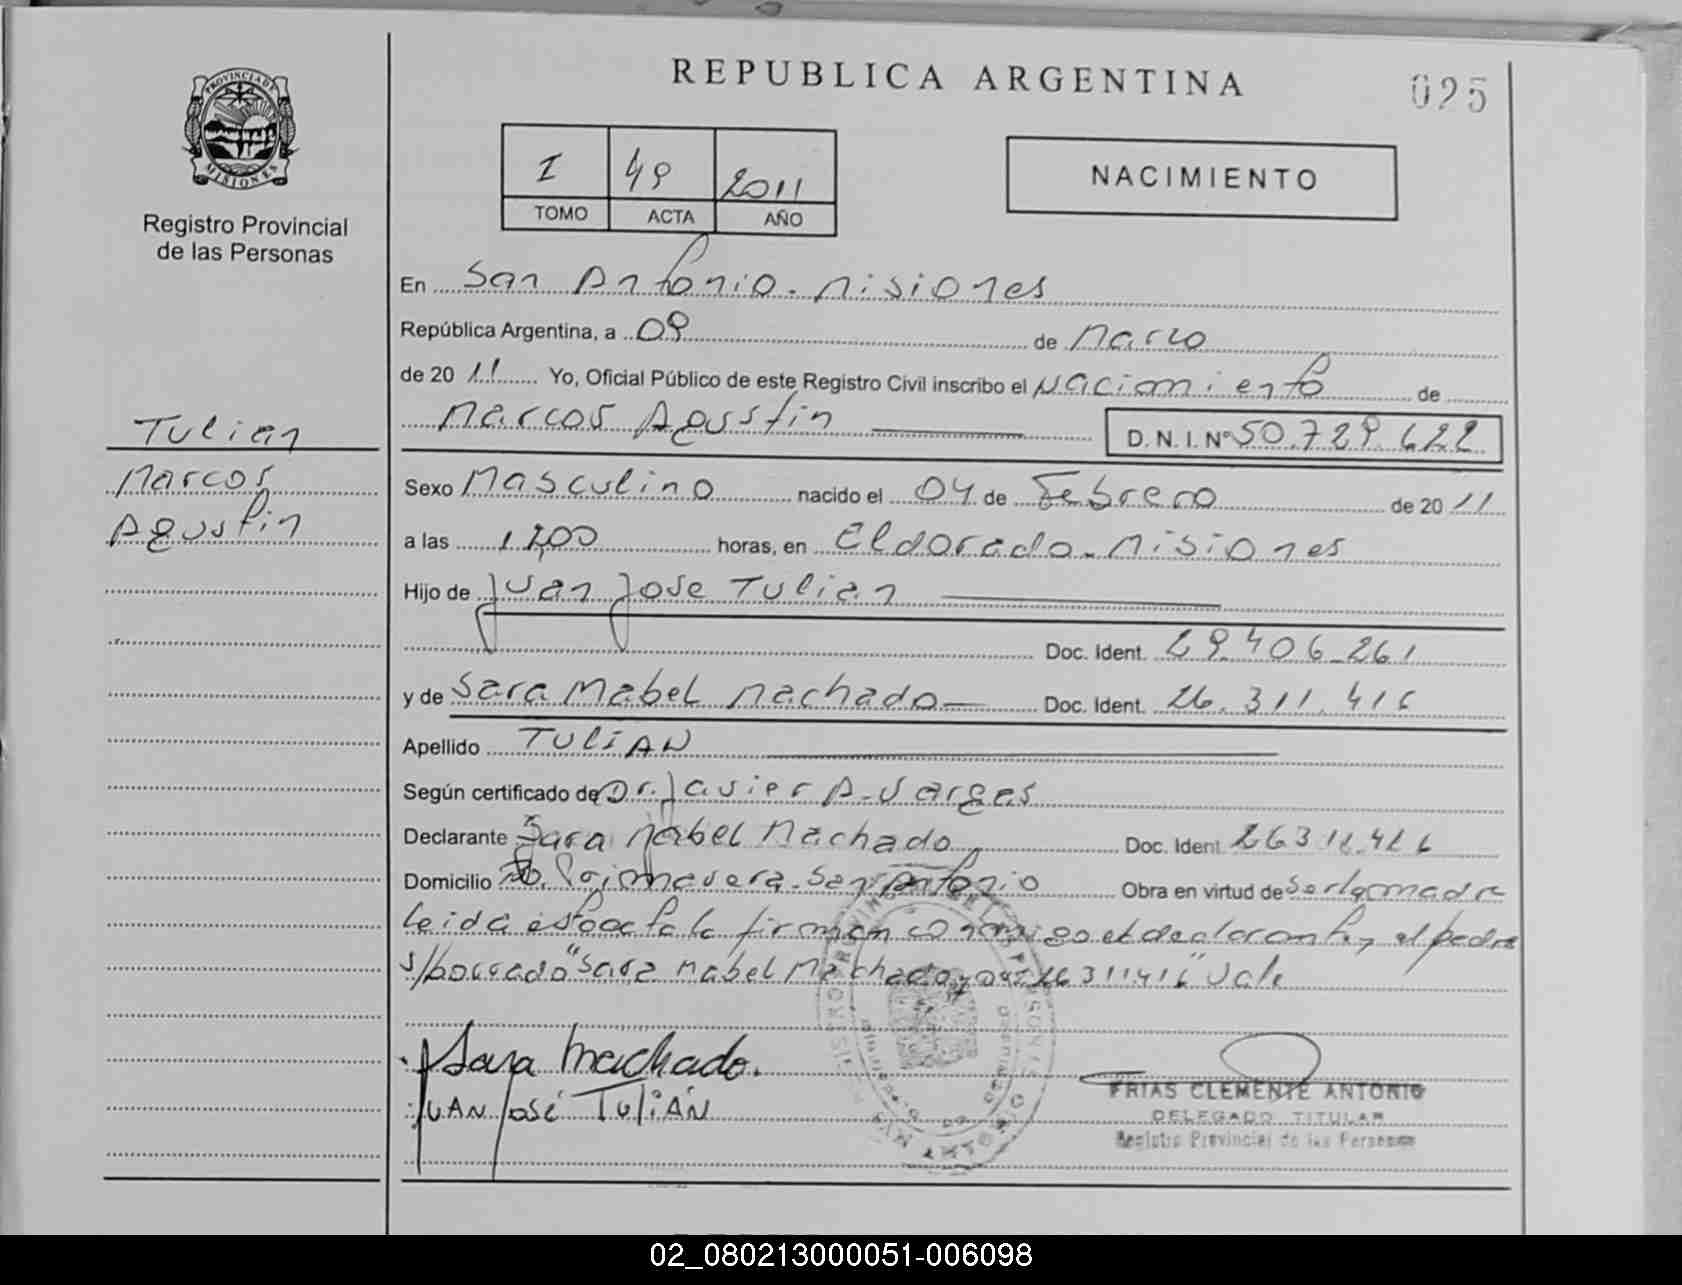 REPUBLICA ARGENTINA
025
PROVINCIA DE MISIONES
Registro Provincial
de las Personas
I 49 2011
TOMO ACTA AÑO
NACIMIENTO
En San Antonio - Misiones
República Argentina, a 09 de Marzo
de 2011 Yo, Oficial Público de este Registro Civil inscribo el Nacimiento de
Marcos Agustin D.N.I. Nº 50.729.622
Tulian
Marcos
Agustin
Sexo Masculino nacido el 04 de Febrero de 2011
a las horas, en Eldorado - Misiones
Hijo de Juan Jose Tulian
Doc. Ident. 29.406.261
y de Sara Mabel Machado Doc. Ident. 26.311.416
Apellido TULIAN
Según certificado de Dr. Javier A. Vargas
Declarante Sara Mabel Machado Doc. Ident. 26311.416
Domicilio Bo. Primavera - San Antonio Obra en virtud de ser la madre
leida esta acta la firman conmigo el declarante y el padre
s/borrado "Sara Mabel Machado y 26311416" Vale
Sara Machado.
JUAN JOSÉ TULIÁN
FRIAS CLEMENTE ANTONIO
DELEGADO TITULAR
Registro Provincial de las Personas
02_080213000051-006098